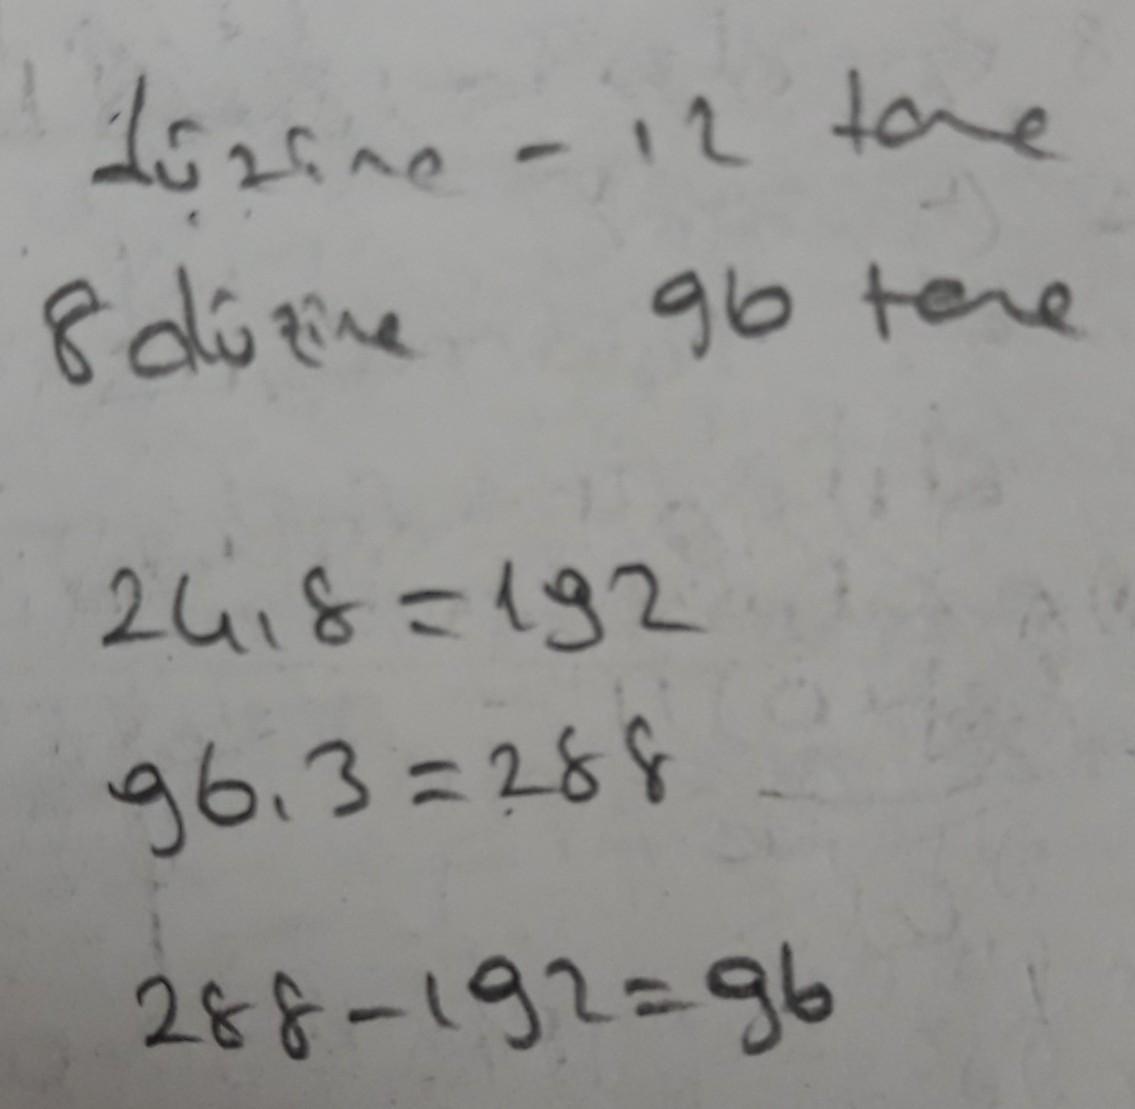 düzine - 12 tane
8 düzine 96 tane
24.8=192
96.3=288
288-192=96